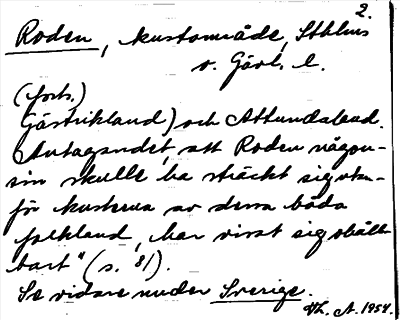 2.
Roden, kustområde, Sthlms
o. Gävl. l.
(forts.)
Gästrikland) och Attundaland.
Antagandet, att Roden någon-
sin skulle ha sträckt sig utan-
för kusterna av dessa båda
folkland, har visst sig ohåll-
bart" (s. 81).
Se vidare under Sverige.
Vh. A. 1954.